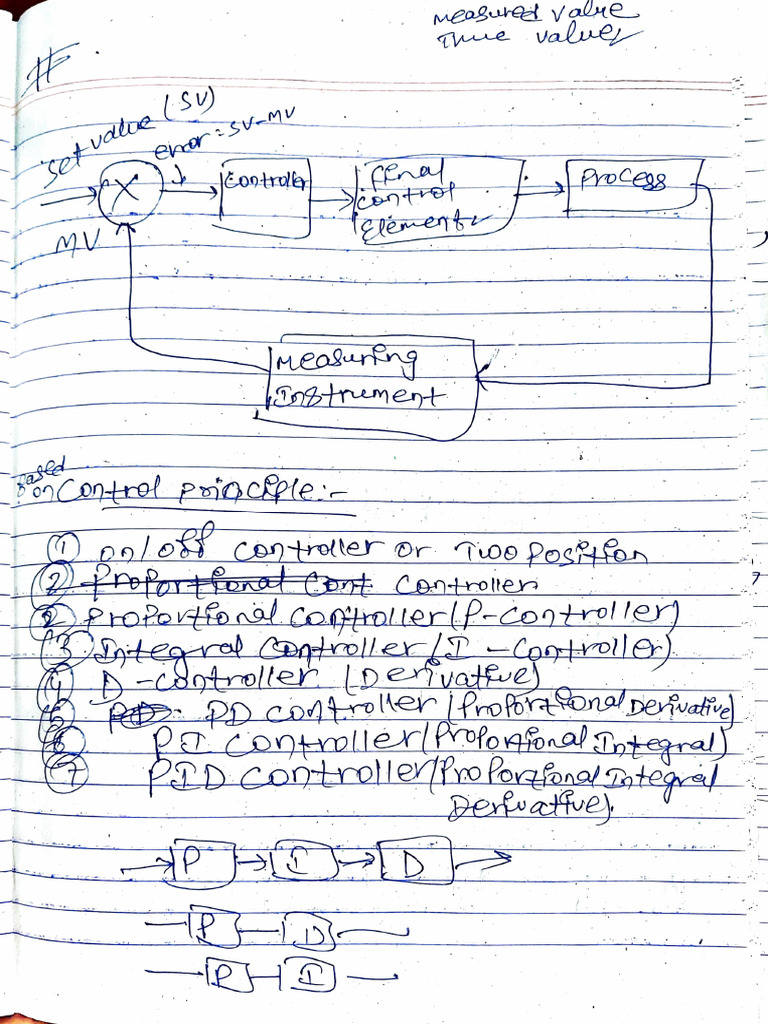 measured value
True value
#
set value (SV)
error = SV-MV
X
controller
final
control
Element
Process
MV
Measuring
Instrument
Based
on Control principle:-
① on/off controller or Two position
② Proportional Cont controller
② Proportional controller (P-controller)
③ Integral Controller (I-Controller)
④ D-controller (Derivative)
⑤ PD: PD controller (Proportional Derivative)
⑥ PI controller (Proportional Integral)
⑦ PID controller (Proportional Integral
Derivative).
P I D
P D
P I